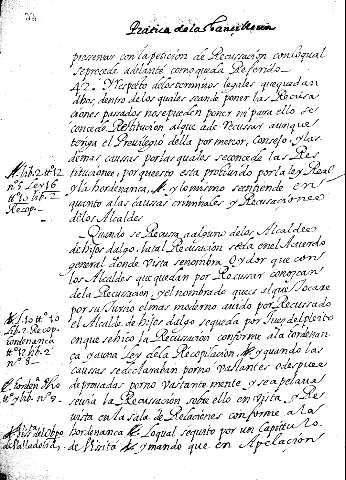 Prática de la Chancilleria
presentar con la petición de Recusación con lo qual
se procede adelante como queda Referido
42. Y respeto de los terminos legales que quedan
dhos, dentro de los quales se an de poner las Recusa
ciones pasados no se pueden poner ni para ello se
concede Restitución al que a de Recusar aunque
tenga el Previlegio della por menor, Consejo, y las
demas causas por las quales se concede las Res
tituciones, porque esto esta proiuido por la ley Real
y la hordenanza, y lo mismo se entiende en
quanto a las causas criminales y Recusaciones
de los Alcaldes
lib. 2 ttº 12
nº 5 Ley 16
ttº 10 lib. 2
Recop.
Quando se Recusa, a alguno de los Alcaldes
de hijos dalgo, la tal Recusación se ve en el Acuerdo
general donde vista se nombra Oydor que con
los Alcaldes que quedan por Recusar conozcan
de la Recusacion, y el nombrado que es el que le cabe
por su turno el mas moderno auido por Recusado
el Alcalde de hijos dalgo se queda por Juez del pleito
en que se hiço la Recusación conforme a la ordenan
ça y una Ley de la Recopilación y quando las
causas se declaraban por no vastantes o despues
de prouadas por no vastantemente, y se apelaua
se uia la Recusación sobre ello en vista, y Re
vista en la sala de Relaciones conforme a la
hordenanza. Lo qual se quito por un Capitulo
de Visita y mando que en Apelación
l. 10 ttº 10
lib. 2 Recop.
ordenanca
ttº 12 lib. 2
nº 8
tordenª dho
ttº y lib. nº 8
Vissª del Obpo
de Valladolid